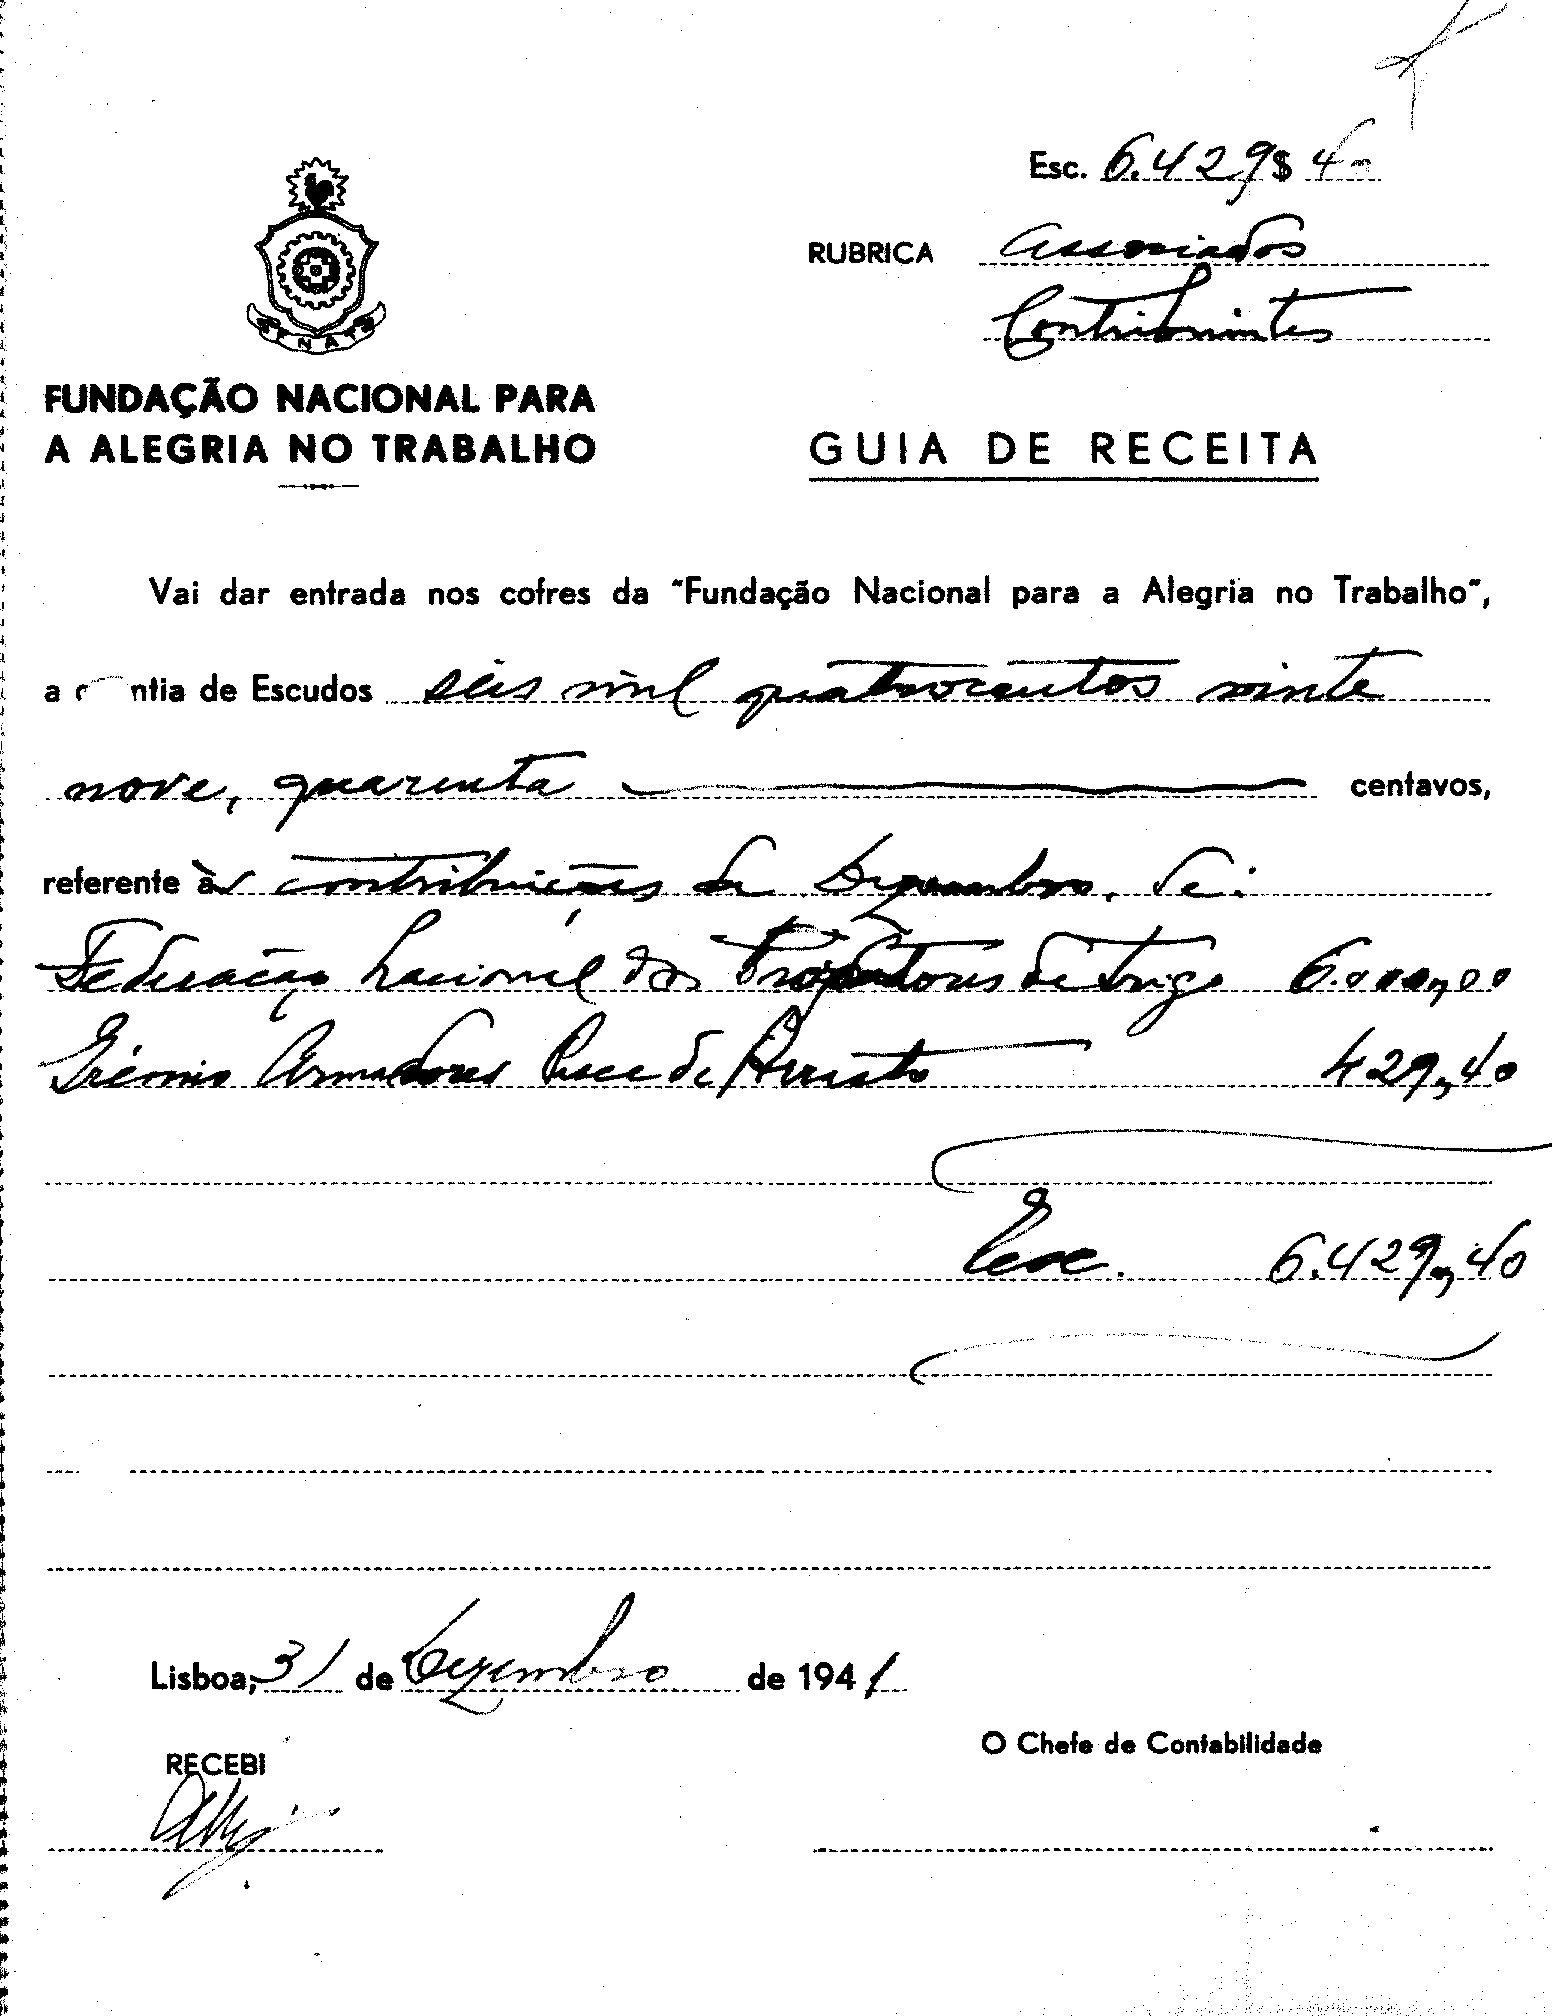 Esc. 6.429$40
RUBRICA Associados
Contribuintes
F.N.A.T.
FUNDAÇÃO NACIONAL PARA
A ALEGRIA NO TRABALHO
GUIA DE RECEITA
Vai dar entrada nos cofres da "Fundação Nacional para a Alegria no Trabalho",
a ntia de Escudos seis mil quatrocentos vinte
nove, quarenta centavos,
referente às contribuições de Dezembro, de:
Federação Nacional dos Produtores de Trigo 6.000,00
Grémio Armadores Pesca de Arrasto 429,40
Esc. 6.429,40
Lisboa, 31 de Dezembro de 1941
O Chefe de Contabilidade
RECEBI